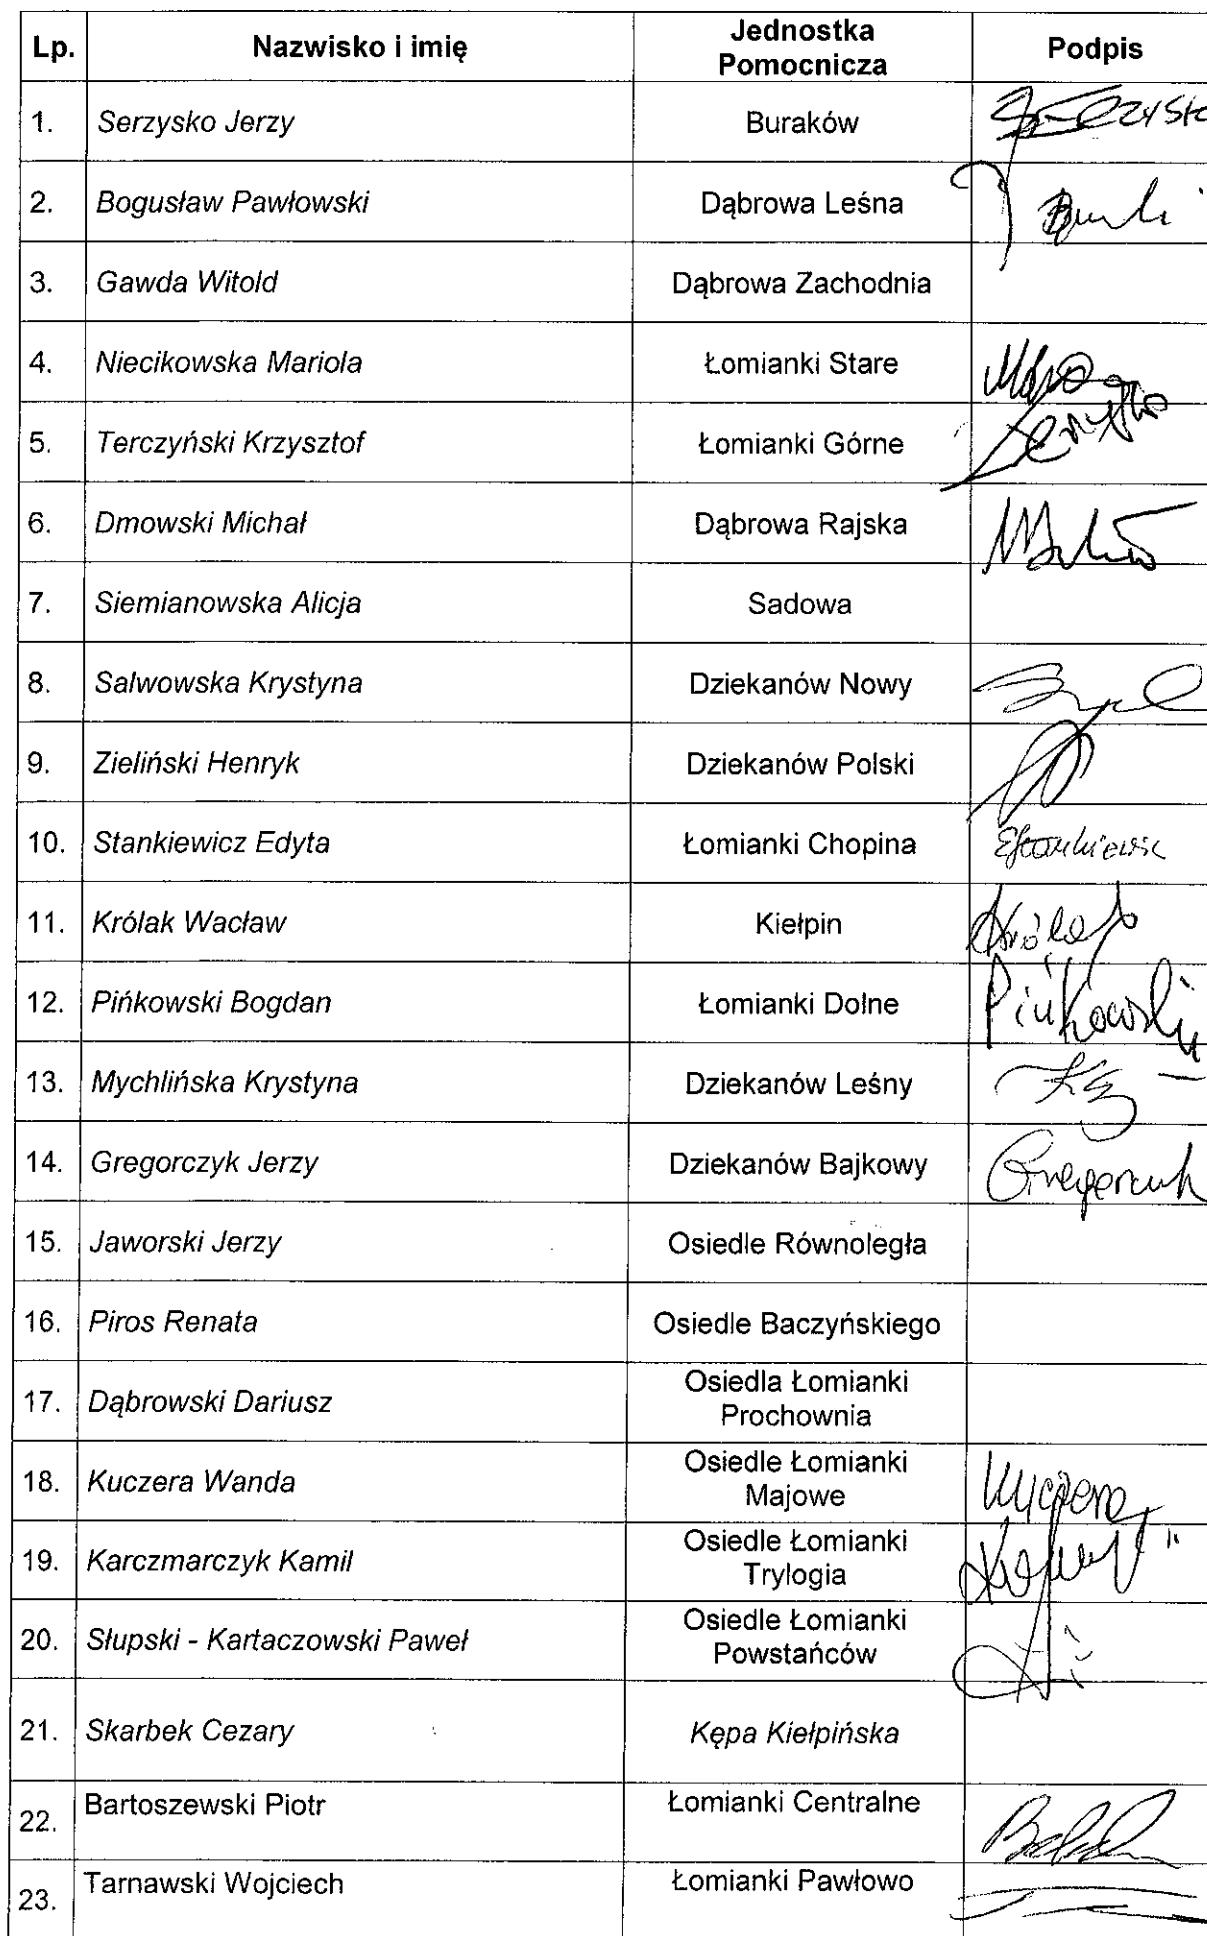 Lp. Nazwisko i imię Jednostka Pomocnicza Podpis
1. Serzysko Jerzy Buraków
2. Bogusław Pawłowski Dąbrowa Leśna
3. Gawda Witold Dąbrowa Zachodnia
4. Niecikowska Mariola Łomianki Stare
5. Terczyński Krzysztof Łomianki Górne
6. Dmowski Michał Dąbrowa Rajska
7. Siemianowska Alicja Sadowa
8. Salwowska Krystyna Dziekanów Nowy
9. Zieliński Henryk Dziekanów Polski
10. Stankiewicz Edyta Łomianki Chopina EStankiewicz
11. Królak Wacław Kiełpin Królak
12. Pińkowski Bogdan Łomianki Dolne Pińkowski
13. Mychlińska Krystyna Dziekanów Leśny
14. Gregorczyk Jerzy Dziekanów Bajkowy Gregorczyk
15. Jaworski Jerzy Osiedle Równoległa
16. Piros Renata Osiedle Baczyńskiego
17. Dąbrowski Dariusz Osiedla Łomianki Prochownia
18. Kuczera Wanda Osiedle Łomianki Majowe Kuczera
19. Karczmarczyk Kamil Osiedle Łomianki Trylogia
20. Słupski - Kartaczowski Paweł Osiedle Łomianki Powstańców
21. Skarbek Cezary Kępa Kiełpińska
22. Bartoszewski Piotr Łomianki Centralne
23. Tarnawski Wojciech Łomianki Pawłowo